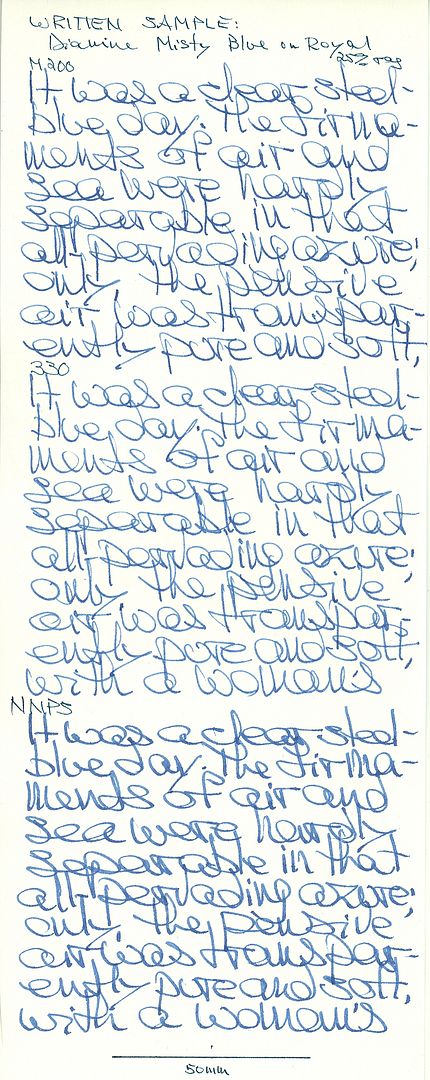 WRITTEN SAMPLE:
Diamine Misty Blue on Royal
25% rag
M200
It was a clear steel-
blue day. The firma-
ments of air and
sea were hardly
separable in that
all-pervading azure;
only, the pensive
air was transpar-
ently pure and soft,
330
It was a clear steel-
blue day. The firma-
ments of air and
sea were hardly
separable in that
all-pervading azure;
only, the pensive
air was transpar-
ently pure and soft,
with a woman's
NNPS
It was a clear steel-
blue day. The firma-
ments of air and
sea were hardly
separable in that
all-pervading azure;
only, the pensive
air was transpar-
ently pure and soft,
with a woman's
50mm